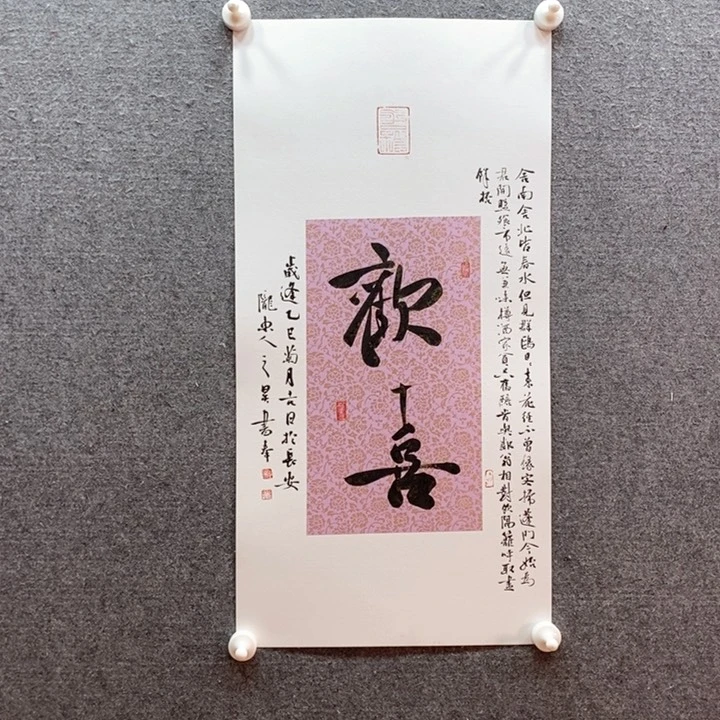 舍南舍北皆春水但見群鷗日日來花徑不曾緣客掃蓬門今始為
君開盤飧市遠無兼味樽酒家貧只舊醅肯與鄰翁相對飲隔籬呼取盡
餘杯
歡喜
歲逢乙巳菊月吉日於長安
隴東人之昊書奉